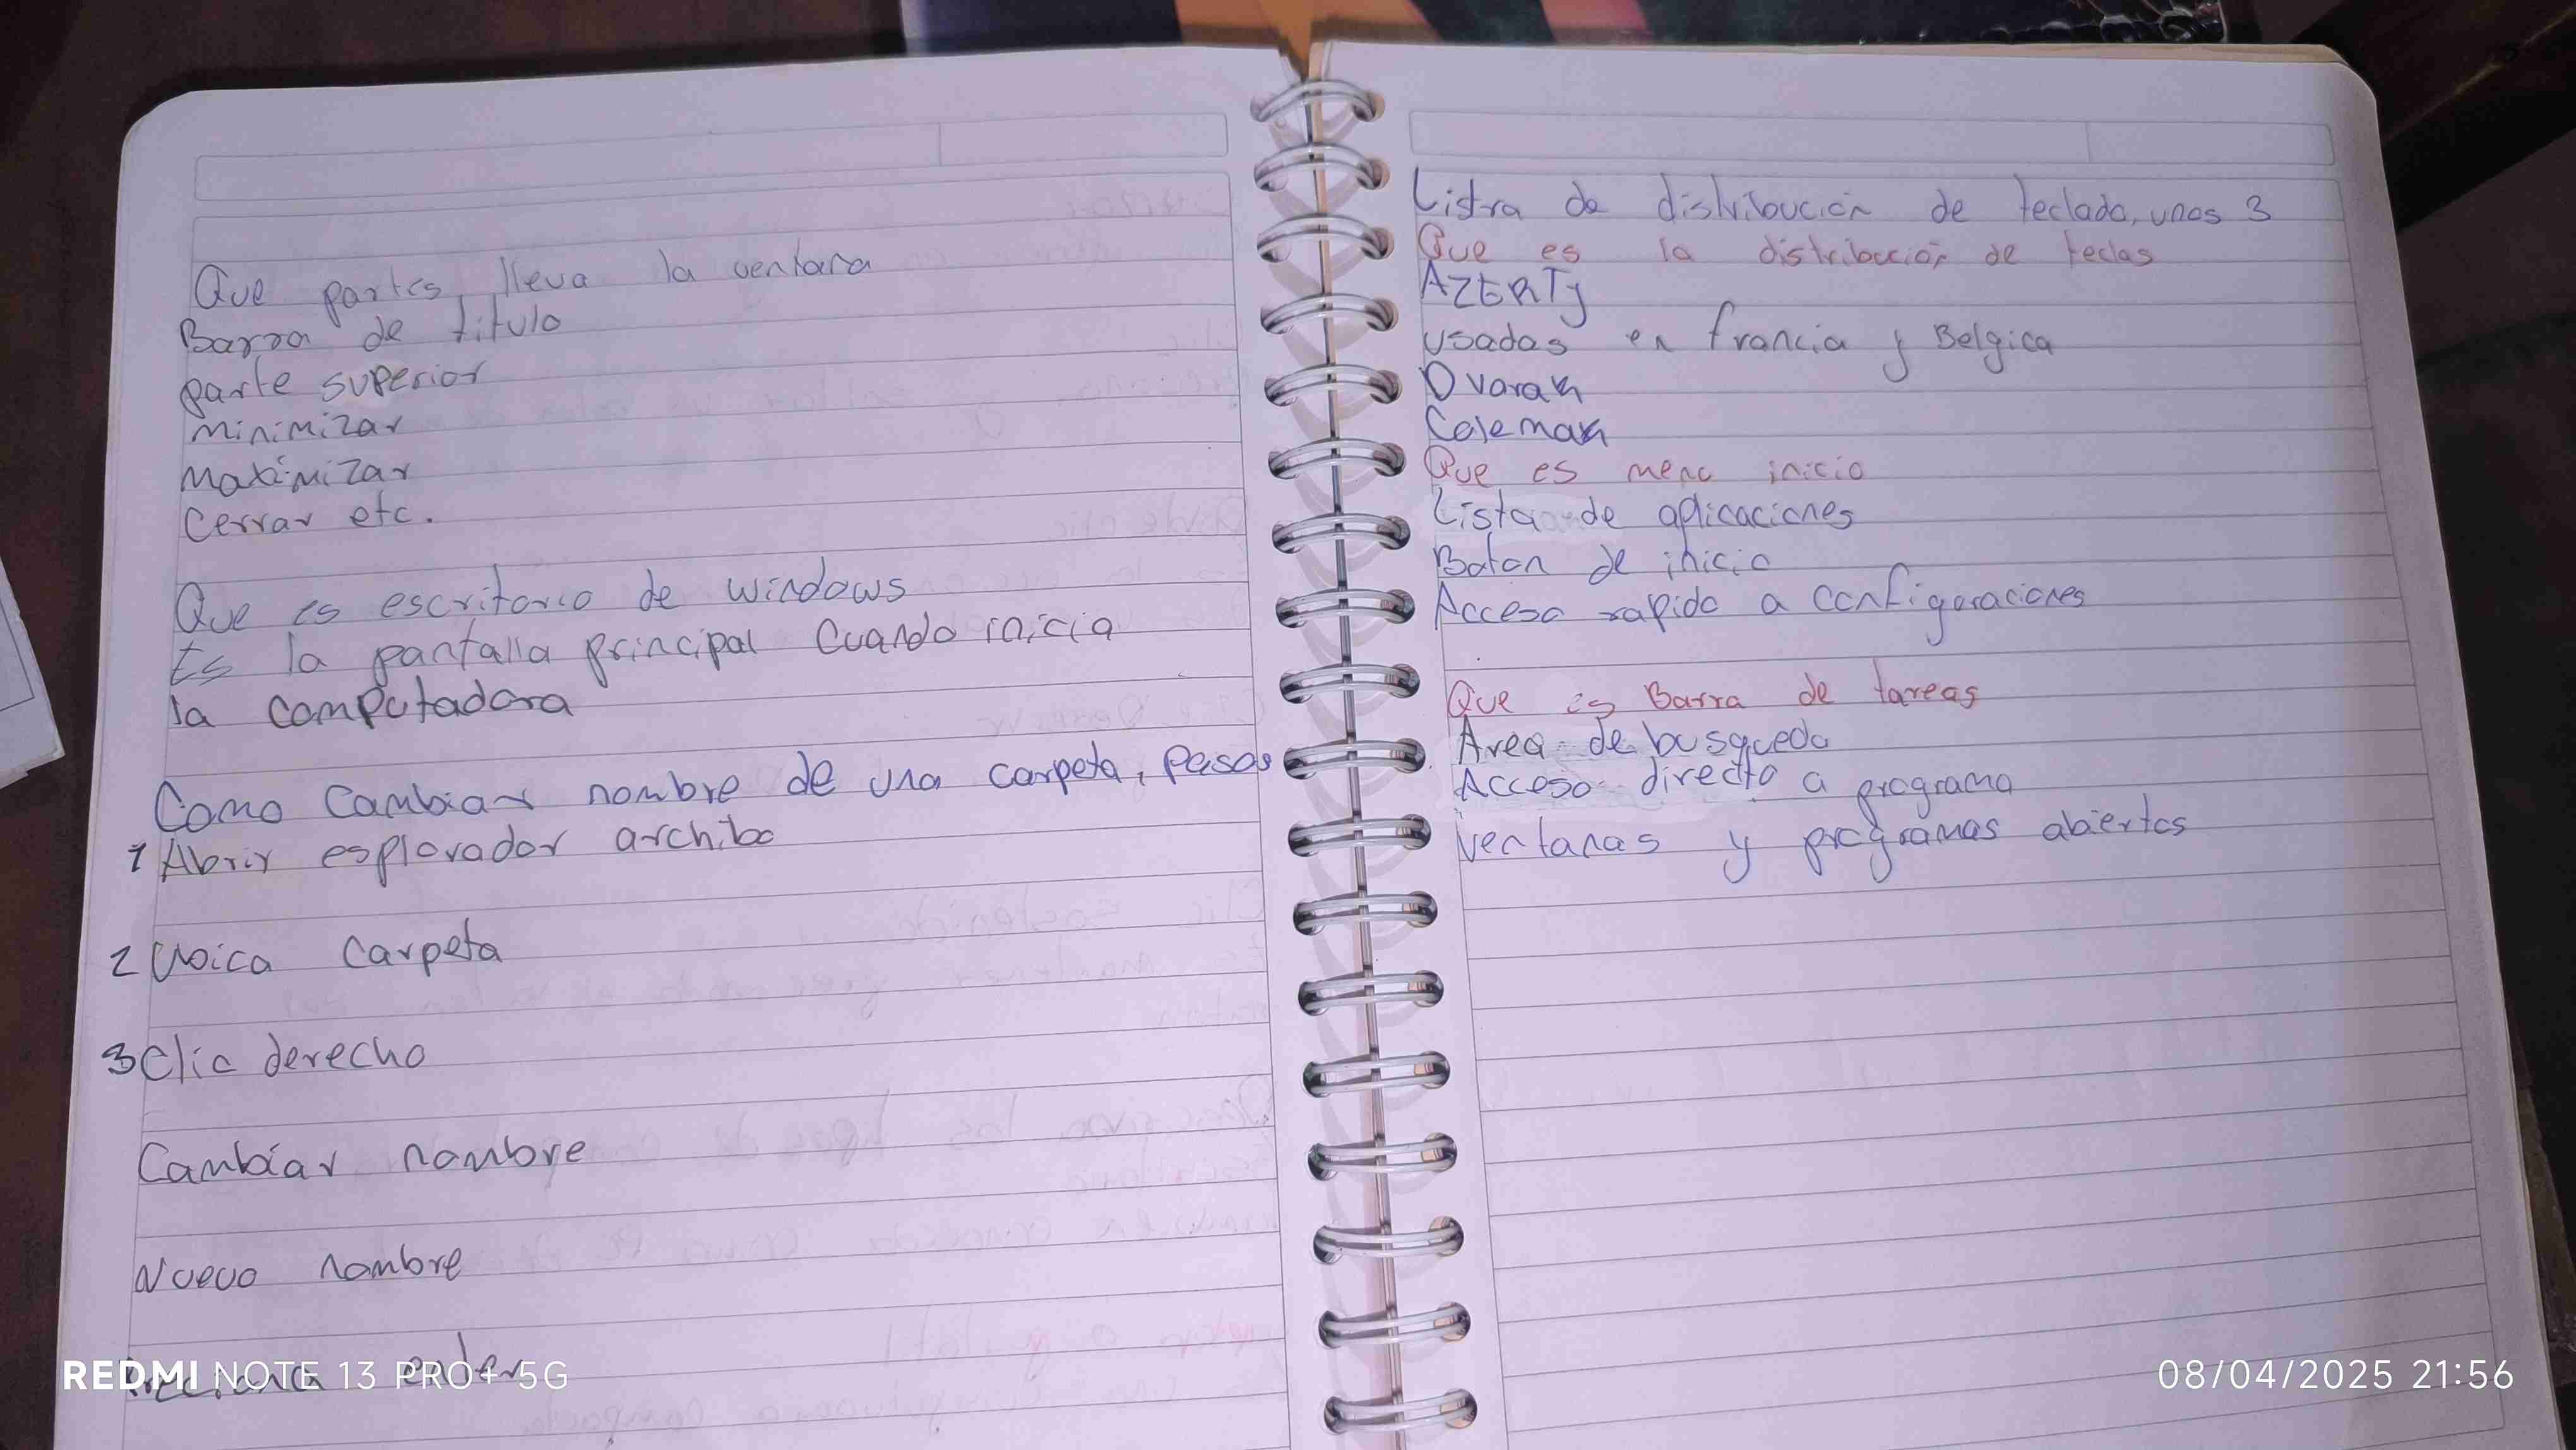 Que partes lleva la ventana
Barra de titulo
parte superior
Minimizar
Maximizar
Cerrar etc.
Que es escritorio de windows
Es la pantalla principal Cuando inicia
la computadora
Como Cambiar nombre de una carpeta, pasos
1 Abrir esplorador archibo
2 Ubica Carpeta
3 Clic derecho
Cambiar nombre
Nuevo nombre
enter
Listra de distribución de teclado, unos 3
Que es la distribución de teclas
AZERTy
usadas en francia y Belgica
Dvorak
Colemak
Que es menu inicio
Lista de aplicaciones
Boton de inicio
Acceso rapido a configuraciones
Que es Barra de tareas
Area de busqueda
Acceso directo a programa
ventanas y programas abiertos
REDMI NOTE 13 PRO+ 5G
08/04/2025 21:56